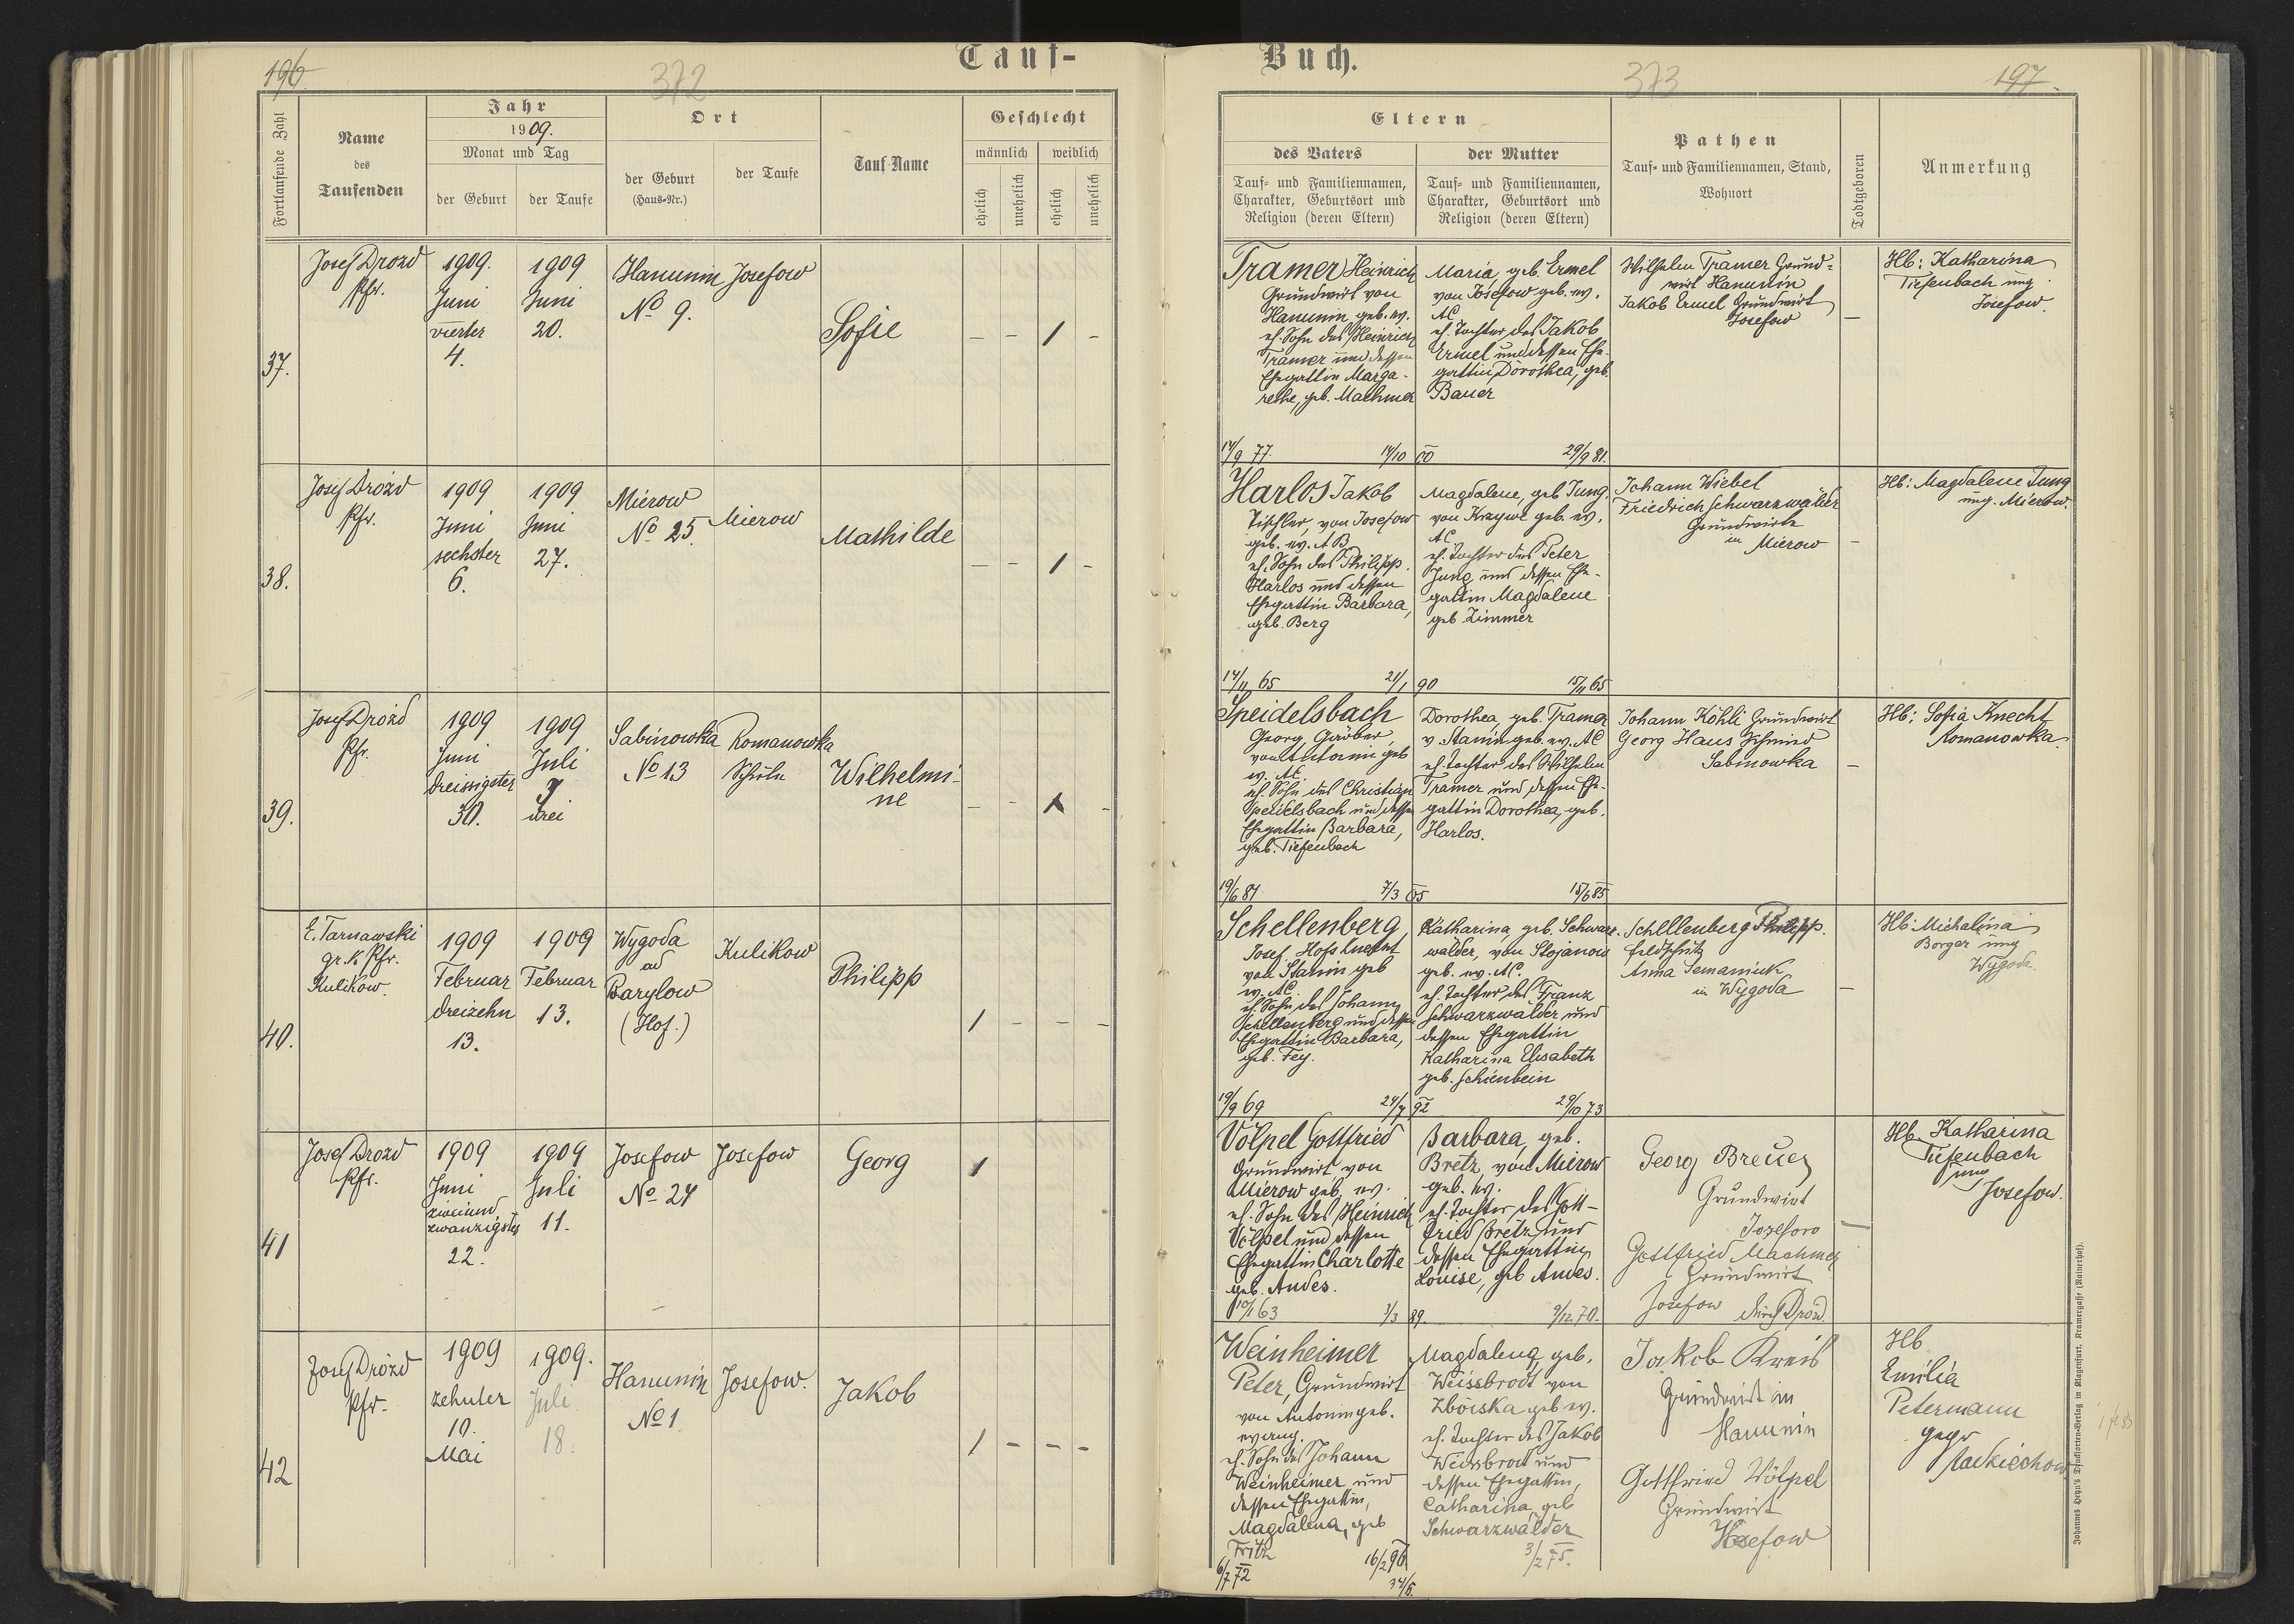 Tauf-
Buch.
196
372
373
197.
Fortlaufende Zahl
Name
des
Taufenden
Jahr
1909.
Monat und Tag
der Geburt
der Taufe
Ort
der Geburt
(Haus-Nr.)
der Taufe
Tauf-Name
Geschlecht
männlich
weiblich
ehelich
unehelich
ehelich
unehelich
Eltern
des Vaters
Tauf- und Familiennamen,
Charakter, Geburtsort und
Religion (deren Eltern)
der Mutter
Tauf- und Familiennamen,
Charakter, Geburtsort und
Religion (deren Eltern)
Pathen
Tauf- und Familiennamen, Stand,
Wohnort
Todtgeboren
Anmerkung
37.
Josef Drozd
Pfr.
1909.
Juni
vierter
4.
1909
Juni
20.
Hanunin
No 9.
Josefow
Sofie
– – / –
Tramer Heinrich
Grundwirt von
Hanunin geb. ev.
eh. Sohn des Heinrich
Tramer und dessen
Ehegattin Marga-
rethe, geb. Machmer
14/9 77.
14/10 00
Maria, geb. Ermel
von Josefow geb. ev.
AC
eh. Tochter des Jakob
Ermel und dessen Ehe-
gattin Dorothea, geb.
Bauer
29/9 81.
Wilhelm Tramer Grund-
wirt Hanunin
Jakob Ermel Grundwirt
Josefow
–
Hb: Katharina
Tiefenbach ung.
Josefow.
38.
Josef Drozd
Pfr.
1909
Juni
sechster
6.
1909
Juni
27.
Mierow
No 25.
Mierow
Mathilde
– – / –
Harlos Jakob
Tischler, von Josefow
geb. ev. AB
eh. Sohn des Philipp
Harlos und dessen
Ehegattin Barbara,
geb. Berg
14/11 65
21/1 90
Magdalene, geb Jung.
von Krzywe geb. ev.
AC
eh. Tochter des Peter
Jung und dessen Ehe-
gattin Magdalene
geb Zimmer
15/11 65
Johann Wiebel
Friedrich Schwarzwälder
Grundwirte
in Mierow
–
Hb: Magdalene Jung
ung. Mierow.
39.
Josef Drozd
Pfr.
1909
Juni
dreissigster
30.
1909
Juli
3
drei
Sabinowka
No 13
Romanowka
Schule
Wilhelmi-
ne
Speidelsbach
Georg, Gärber,
von Antonin geb
ev. AC.
eh. Sohn des Christian
Speidelsbach und dessen
Ehegattin Barbara,
geb. Tiefenbach
19/6 81
7/3 05
Dorothea, geb. Tramer
v Stanin geb. ev. AC
eh. Tochter des Wilhelm
Tramer und dessen Ehe-
gattin Dorothea, geb.
Harlos.
15/6 85
Johann Köhli Grundwirt
Georg Haus Schmied
Sabinowka
–
Hb: Sofia Knecht
Romanowka.
40.
E. Tarnawski
gr. k. Pfr.
Kulikow.
1909
Februar
dreizehn
13.
1909
Februar
13.
Wygoda
ad
Barylow
(Hof.)
Kulikow
Philipp
/ – – –
Schellenberg,
Josef, Hofsknecht
von Stanin geb
ev. AC
eh. Sohn des Johann
Schellenberg und dessen
Ehegattin Barbara,
geb. Fey.
19/9 69
24/7 92
Katharina, geb. Schwarz-
walder, von Stojanow
geb. ev. AC.
eh. Tochter des Franz
Schwarzwälder und
dessen Ehegattin
Katharina Elisabeth
geb. Schienbein
29/10 73
Schellenberg Philipp.
Feldschütz
Anna Semaniuk
in Wygoda
–
Hb Michalina
Borger ung
Wygoda.
41
Josef Drozd
Pfr.
1909
Juni
zweiund
zwanzigster
22.
1909
Juli
11.
Josefow
No 24
Josefow
Georg
/
Völpel Gottfried
Grundwirt von
Mierow geb. ev.
eh. Sohn des Heinrich
Völpel und dessen
Ehegattin Charlotte
geb. Andes.
3/3 89.
Barbara, geb.
Bretz, von Mierow
geb. ev.
eh. Tochter des Gott-
fried Bretz und
dessen Ehegattin
Louise, geb Andes.
9/12 70.
Georg Breuer
Grundwirt
Josefow
Gottfried Machmer
Grundwirt
Josefow durch Drozd
–
Hb. Katharina
Tiefenbach
ung
Josefow.
42
Josef Drozd
Pfr.
1909
zehnter
10.
Mai
1909.
Juli
18.
Hanunin
No 1
Josefow.
Jakob
/ – – –
Weinheimer
Peter, Grundwirt
von Antonin geb.
evang.
eh. Sohn des Johann
Weinheimer und
dessen Ehegattin,
Magdalena, geb
Fritz
6/7 72
16/2 96
Magdalena, geb.
Weissbrodt von
Zboiska geb ev.
eh. Tochter des Jakob
Weissbrodt und
dessen Ehegattin,
Catharina geb
Schwarzwälder
3/2 75.
Jakob Kreis
Grundwirt in
Hanunin
Gottfried Völpel
Grundwirt
Josefow
Hb
Emilia
Petermann
Johannes Heyn's Drucksorten-Verlag in Klagenfurt, Kramergasse (Rainerhof).